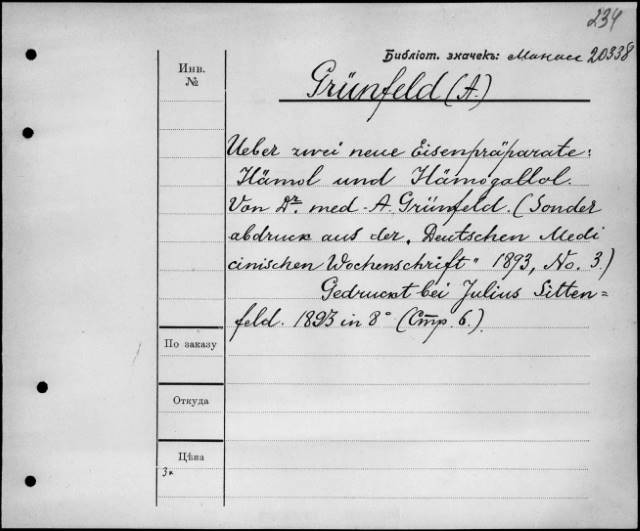 234
Библіот. значекъ: Манасс 20338
Инв.
№
Grünfeld (A.)
Ueber zwei neue Eisenpräparate:
Hämol und Hämogallol.
Von Dr. med. A. Grünfeld. (Sonder
abdruck aus der „Deutschen Medi
cinischen Wochenschrift" 1893, No. 3.)
Gedruckt bei Julius Sitten=
feld. 1893 in 8° (Стр. 6.)
По заказу
Откуда
Цѣна
3*